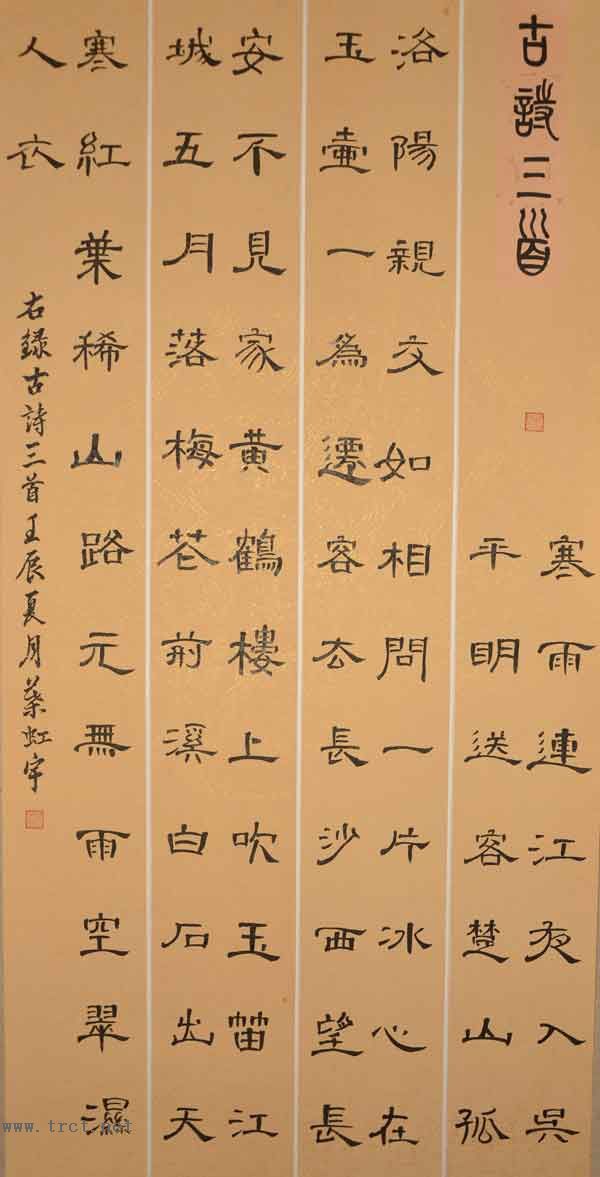 古詩三首
寒雨連江夜入吳
平明送客楚山孤
洛陽親友如相問一片冰心在
玉壺一爲遷客去長沙西望長
安不見家黃鶴樓上吹玉笛江
城五月落梅花荊溪白石出天
寒紅葉稀山路元無雨空翠濕
人衣
右錄古詩三首壬辰夏月虹宇
www.trct.net